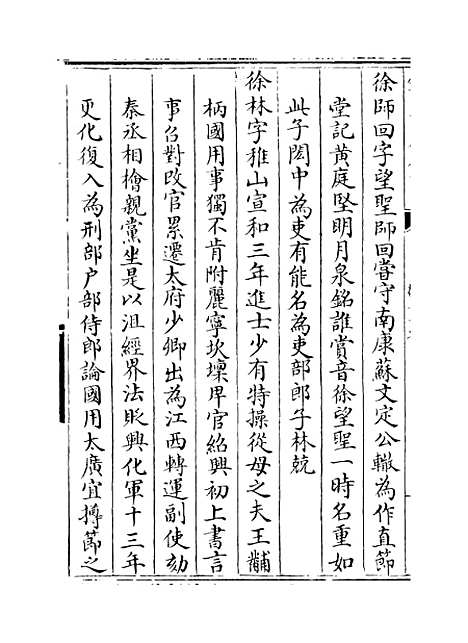 徐師回字望聖師回嘗守南康蘇文定公轍為作直節
堂記黄庭堅明月泉銘誰賞音徐望聖一時名重如
此子閎中為吏有能名為吏部郎子林兢
徐林字稚山宣和三年進士少有特操從母之夫王黼
柄國用事獨不肯附麗寧坎壈卑官紹興初上書言
事召對改官累遷太府少卿出為江西轉運副使劾
秦丞相檜親黨坐是以沮經界法貶興化軍十三年
更化復入為刑部户部侍郎論國用太廣宜撙節之